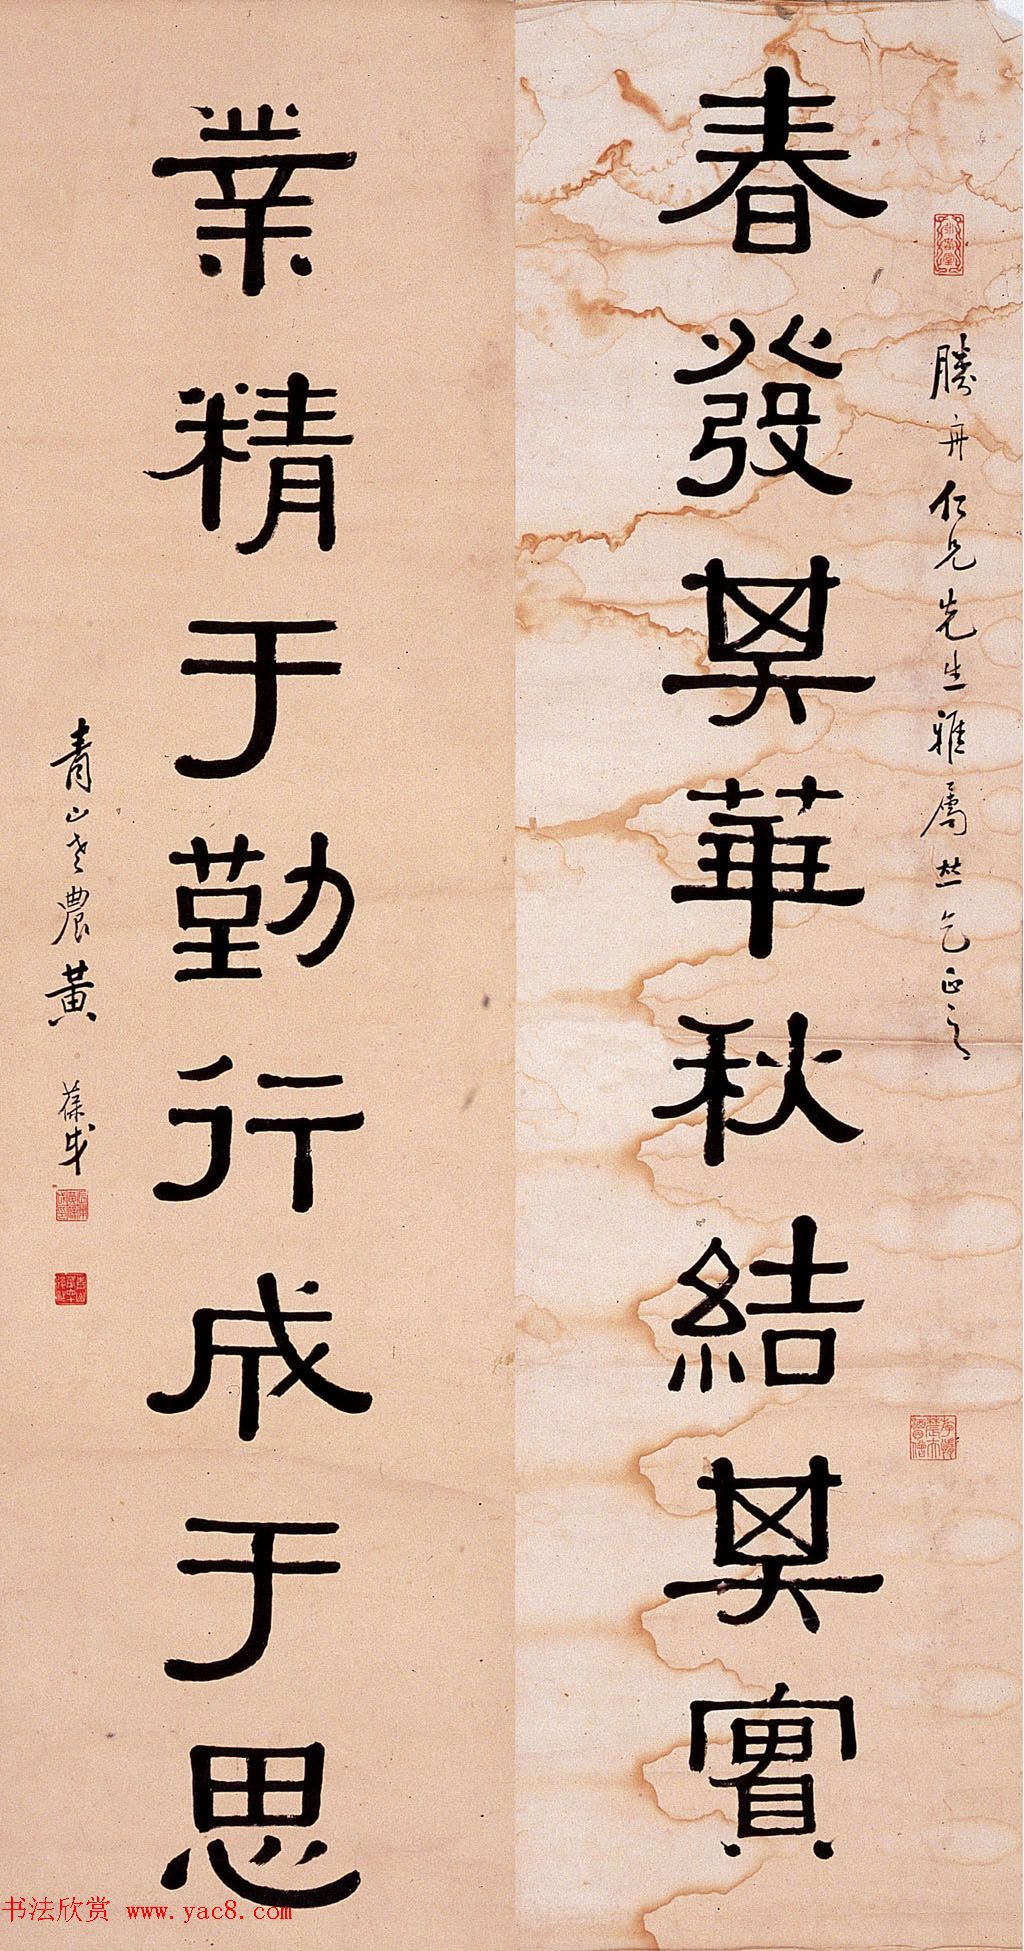 勝舟仁兄先生雅屬即乞正之
春發其華秋結其實
業精于勤行成于思
青山老農黃葆戉
书法欣赏 www.yac8.com